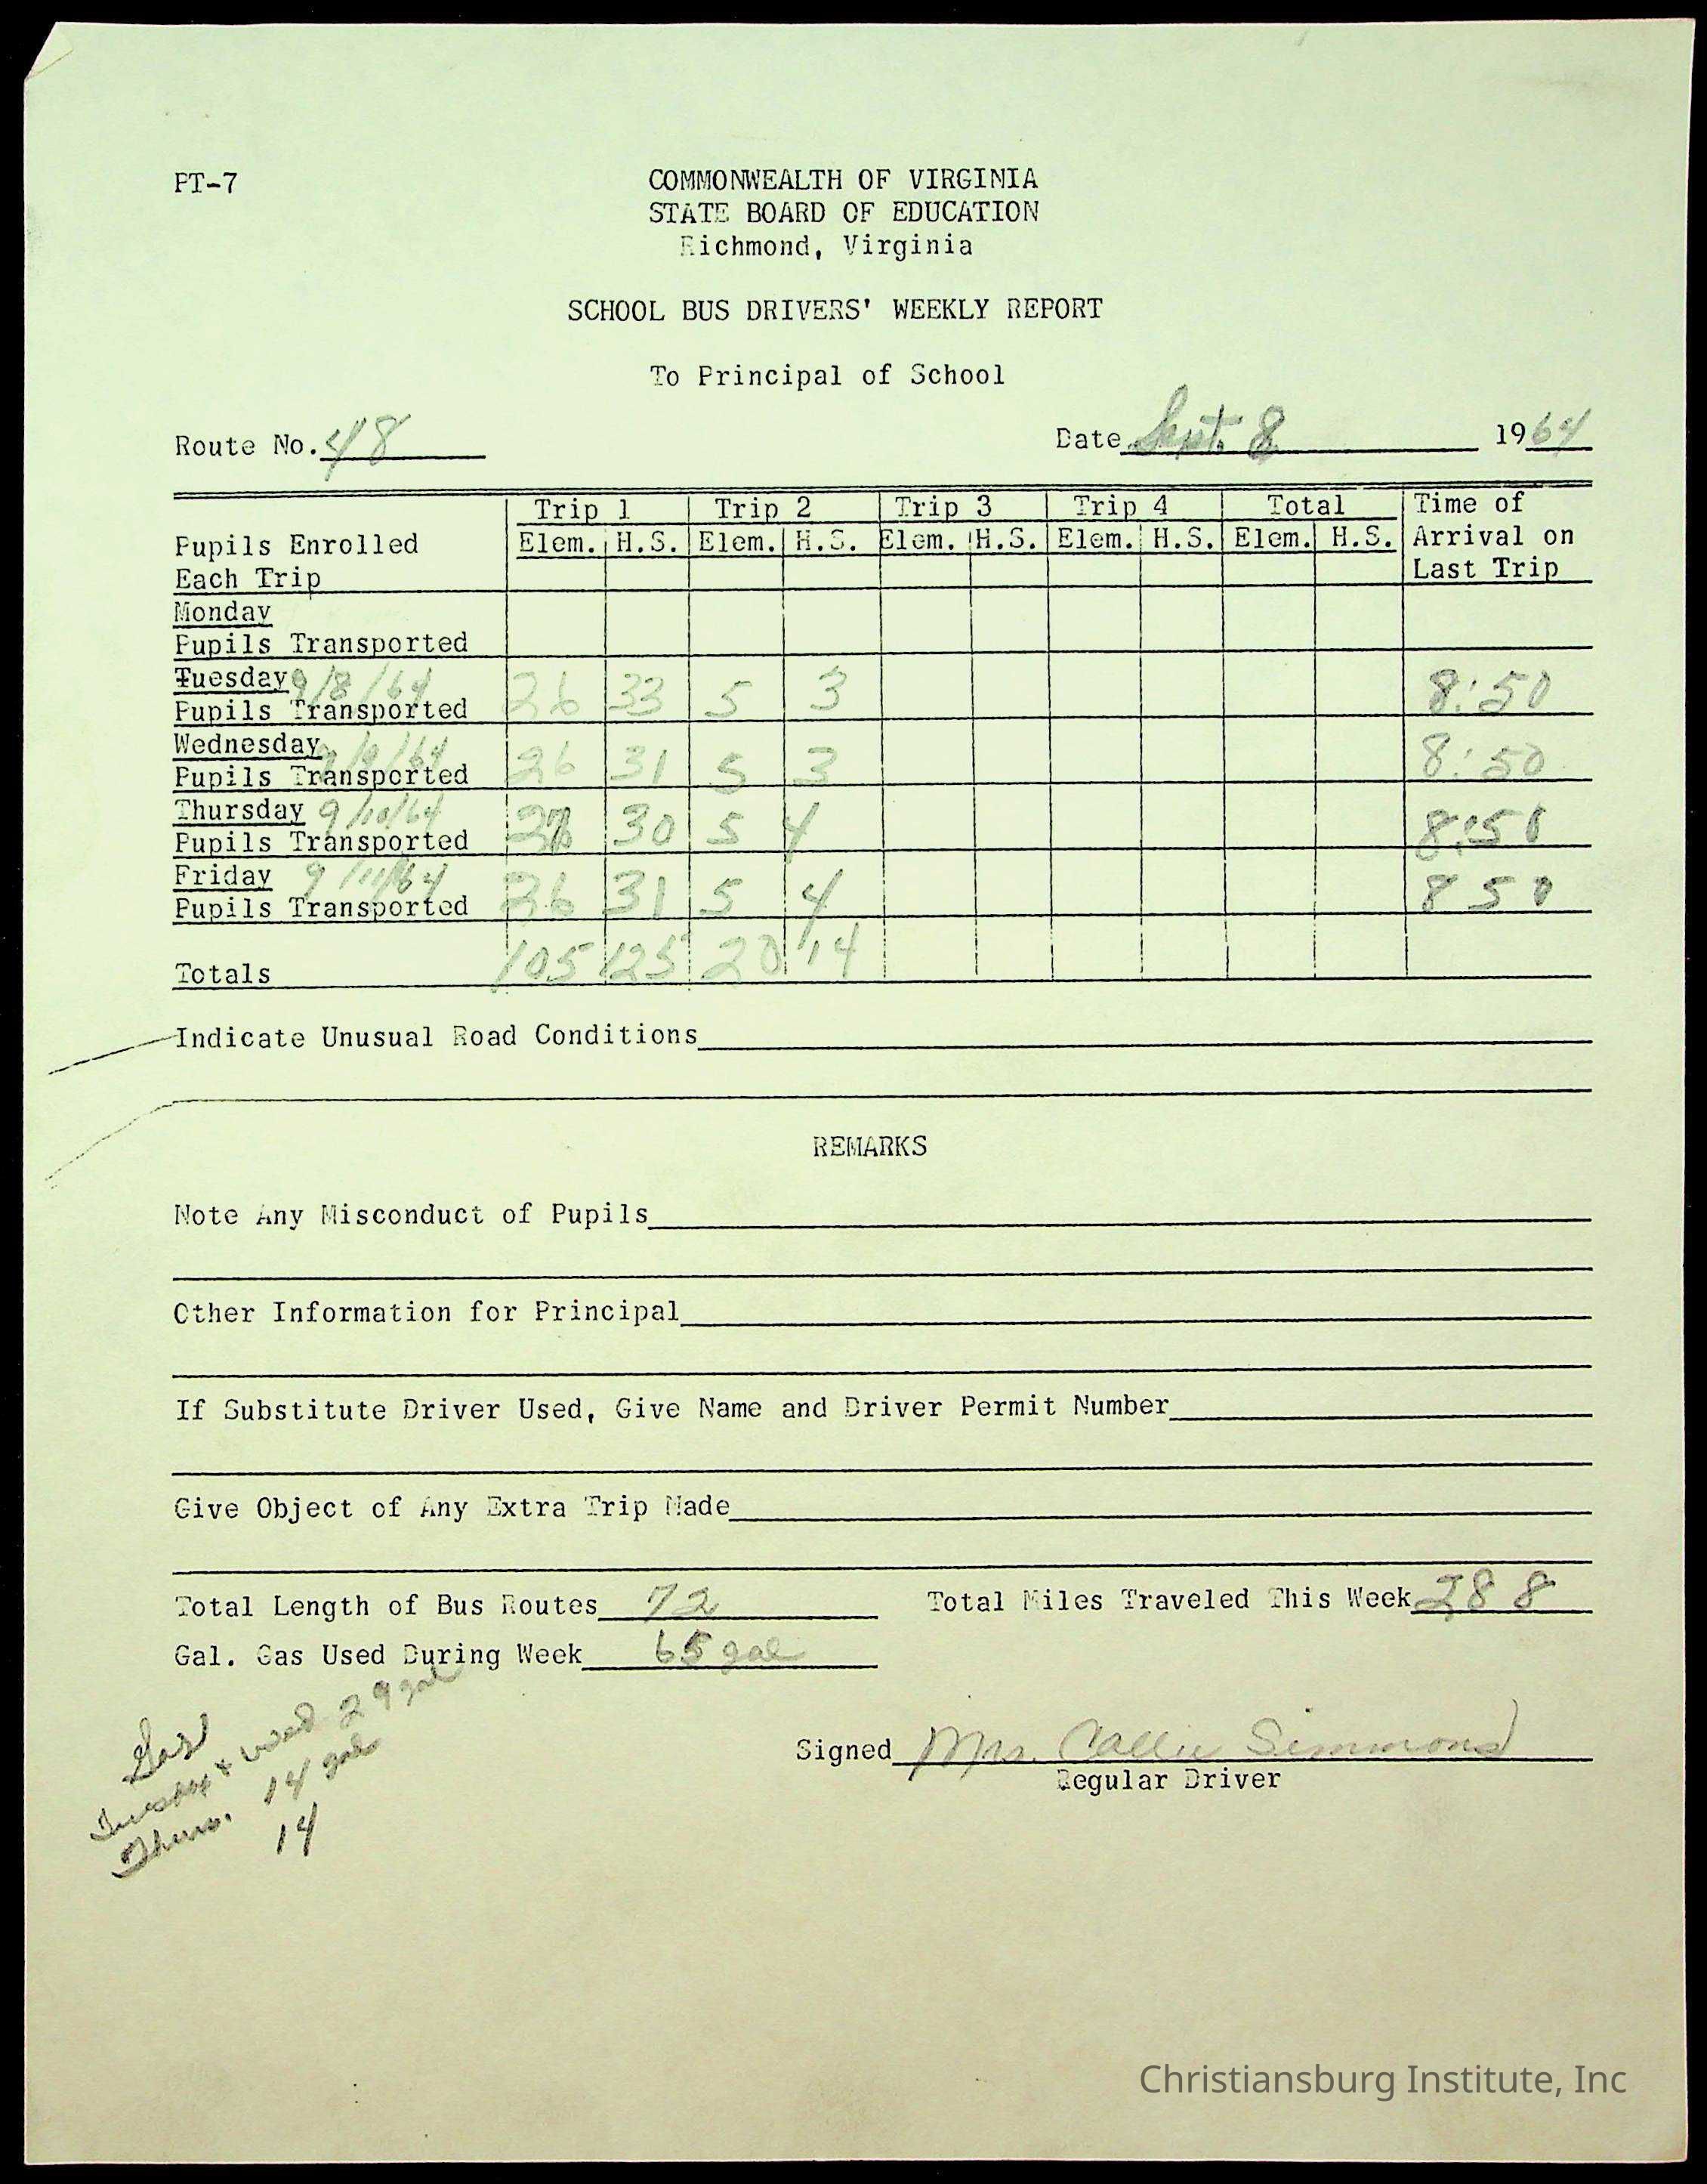 PT-7
COMMONWEALTH OF VIRGINIA
STATE BOARD OF EDUCATION
Richmond, Virginia
SCHOOL BUS DRIVERS' WEEKLY REPORT
To Principal of School
Route No. 48 Date Sept. 8 1964
Trip 1 Trip 2 Trip 3 Trip 4 Total Time of
Pupils Enrolled Elem. H.S. Elem. H.S. Elem. H.S. Elem. H.S. Elem. H.S. Arrival on
Each Trip Last Trip
Monday
Pupils Transported
Tuesday 9/8/64
Pupils Transported 26 33 5 3 8:50
Wednesday 9/9/64
Pupils Transported 26 31 5 3 8:50
Thursday 9/10/64
Pupils Transported 27 30 5 4 8:50
Friday 9/11/64
Pupils Transported 26 31 5 4 8 50
Totals 105 125 20 14
Indicate Unusual Road Conditions
REMARKS
Note Any Misconduct of Pupils
Other Information for Principal
If Substitute Driver Used, Give Name and Driver Permit Number
Give Object of Any Extra Trip Made
Total Length of Bus Routes 72 Total Miles Traveled This Week 288
Gal. Gas Used During Week 65 gal
Gas
Tuesday & Wed 29 gal
Thurs. 14 gal
14
Signed Mrs. Callie Simmons
Regular Driver
Christiansburg Institute, Inc